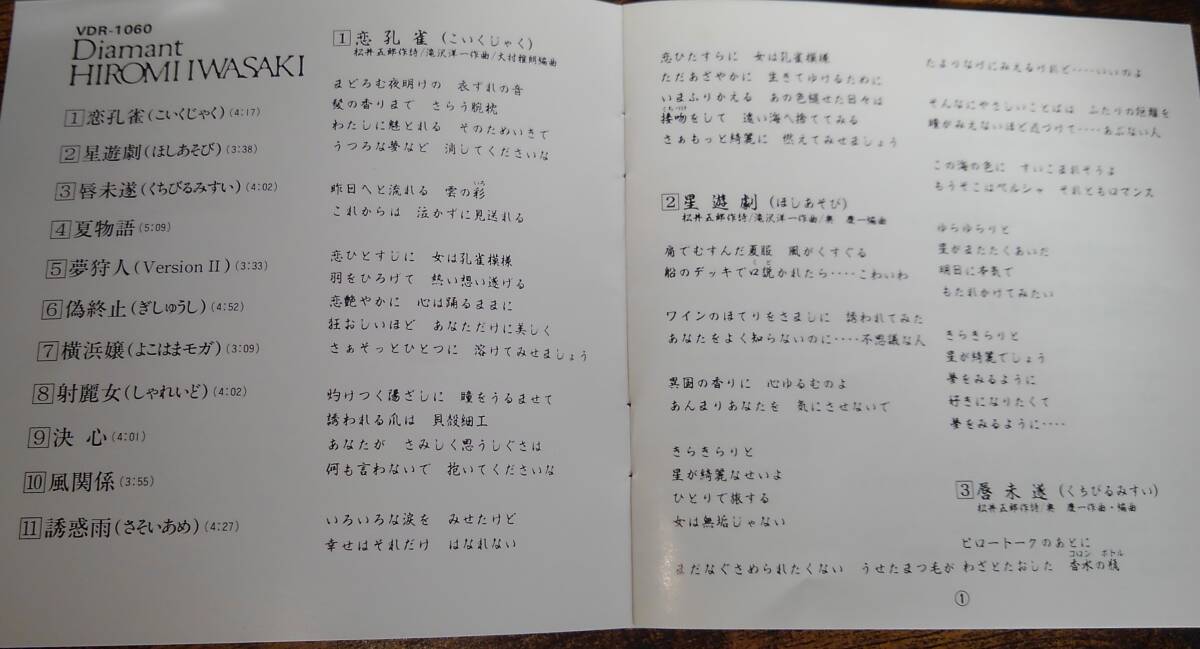 VDR-1060
Diamant
HIROMI IWASAKI
1 恋孔雀(こいくじゃく)(4:17)
2 星遊劇(ほしあそび)(3:38)
3 唇未遂(くちびるみすい)(4:02)
4 夏物語(5:09)
5 夢狩人(Version II)(3:33)
6 偽終止(ぎしゅうし)(4:52)
7 横浜嬢(よこはまモガ)(3:09)
8 射麗女(しゃれいど)(4:02)
9 決心(4:01)
10 風関係(3:55)
11 誘惑雨(さそいあめ)(4:27)
1 恋孔雀(こいくじゃく)
松井五郎作詩/滝沢洋一作曲/大村雅朗編曲
まどろむ夜明けの 衣ずれの音
髪の香りまで さらう腕枕
わたしに魅とれる そのためいきで
うつろな夢など 消してくださいな
昨日へと流れる 雲の彩(いろ)
これからは 泣かずに見送れる
恋ひとすじに 女は孔雀模様
羽をひろげて 熱い想い遂げる
恋艶やかに 心は踊るままに
狂おしいほど あなただけに美しく
さぁそっとひとつに 溶けてみせましょう
灼けつく陽ざしに 瞳をうるませて
誘われる爪は 貝殻細工
あなたが さみしく思うしぐさは
何も言わないで 抱いてくださいな
いろいろな涙を みせたけど
幸せはそれだけ はなれない
恋ひたすらに 女は孔雀模様
ただあざやかに 生きてゆけるために
いまふりかえる あの色褪せた日々は
接吻(くちづけ)をして 遠い海へ捨ててみる
さぁもっと綺麗に 燃えてみせましょう
2 星遊劇(ほしあそび)
松井五郎作詩/滝沢洋一作曲/奥 慶一編曲
肩でむすんだ夏服 風がくすぐる
船のデッキで口説(くど)かれたら‥‥こわいわ
ワインのほてりをさましに 誘われてみた
あなたをよく知らないのに‥‥不思議な人
異国の香りに 心ゆるむのよ
あんまりあなたを 気にさせないで
きらきらりと
星が綺麗なせいよ
ひとりで旅する
女は無垢じゃない
たよりなげにみえるけれど‥‥いいのよ
そんなにやさしいことばは ふたりの距離を
瞳がみえないほど近づけて‥‥あぶない人
この海の色に すいこまれそうよ
もうそこはペルシャ それともロマンス
ゆらゆらりと
星がまたたくあいだ
明日に本気で
もたれかけてみたい
きらきらりと
星が綺麗でしょう
夢をみるように
好きになりたくて
夢をみるように‥‥
3 唇未遂(くちびるみすい)
松井五郎作詩/奥 慶一作曲・編曲
ピロートークのあとに
まだなぐさめられたくない うせたまつ毛が わざとたおした 香水(コロン)の栓(ボトル)
①